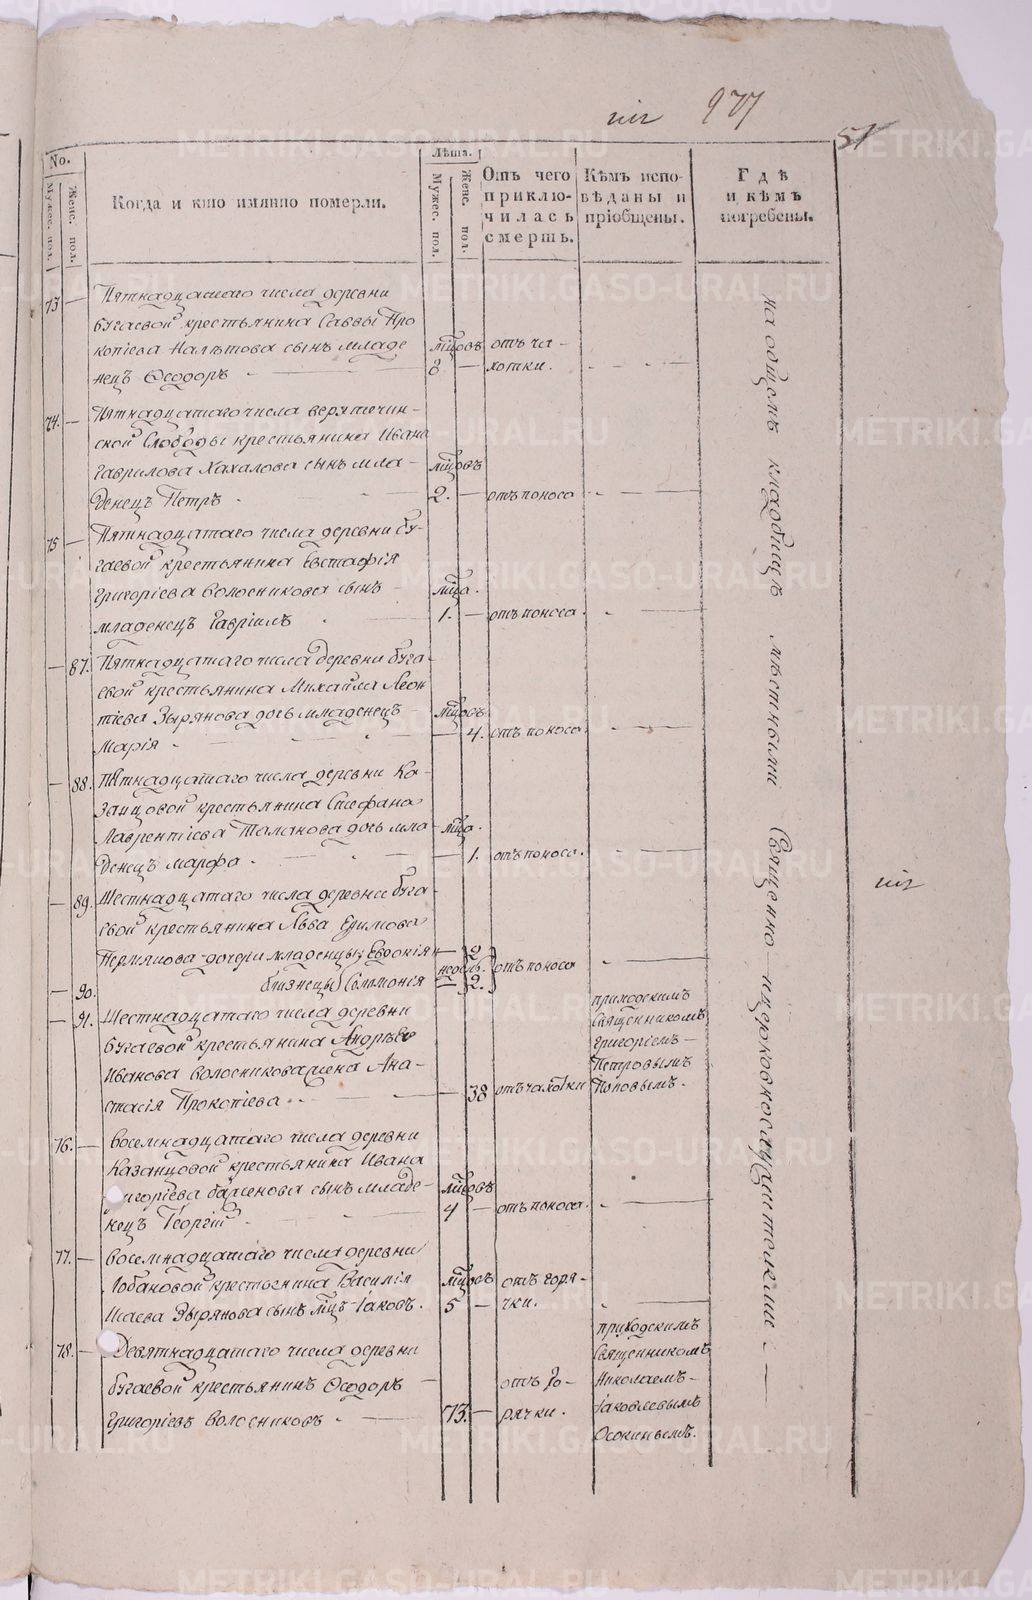 977
51
No.
Мужес. пол.
Женс. пол.
Когда и кто имянно померли.
Лѣта.
Мужес. пол.
Женс. пол.
Отъ чего приклю-
чилась
смерть.
Кѣмъ испо-
вѣданы и
пріобщены.
Гдѣ
и кѣмъ
погребены.
73 — Пятнадцатаго числа деревни
бугаевой крестьянина Саввы Про
копіева Налѣтова сынъ младе мцовъ отъ ча-
нецъ Ѳеодоръ — 8 — хотки.
74. — Пятнадцатаго числа верятечин-
ской Слободы крестьянина Ивана
Гаврилова Хахалова сынъ мла- мцовъ
денецъ Петръ 2. — отъ поноса
75 — Пятнадцатаго числа деревни бу-
гаевой крестьянина Евстафія
Григоріева Волосникова сынъ — мца.
младенецъ Гавріилъ 1. — отъ поноса.
— 87. Пятнадцатаго числа деревни буга-
евой крестьянина Михайла Леон
тіева Зырянова дочь младенецъ — мцовъ
Марія — 4. отъ поноса.
— 88. Пятнадцатаго числа деревни Ка-
занцовой крестьянина Стефана
Лаврентіева Таланова дочь мла- мца.
денецъ Марфа. — 1. отъ поноса.
— 89. Шестнадцатаго числа деревни буга-
евой крестьянина Льва Ефимова
Пермякова дочери младенцы Евдокія — 2
недѣль. отъ поноса
— 90. близнецы Соломонія — 2.
— 91. Шестнадцатаго числа деревни
бугаевой крестьянина Андрѣя
Иванова Волосникова жена Ана-
стасія Прокопіева — 38 отъ чахотки
приходскимъ
Священникомъ
Григоріемъ —
Петровымъ
Поповымъ.
76. — Восемнадцатаго числа деревни
Казанцовой крестьянина Ивана
Григоріева сынъ младе- мцовъ
нецъ Георгій 4 — отъ поноса.
77. — Восемнадцатаго числа деревни
Лобановой крестьянина Василія мцовъ отъ горя-
Исаева Зырянова сынъ млц Іаковъ. 5 — чки.
78. — Девятнадцатаго числа деревни
бугаевой крестьянинъ Ѳеодоръ — отъ го-
Григоріевъ Волосниковъ 73. — рячки.
приходскимъ
Священникомъ
Николаемъ —
Іаковлевымъ
Осокинымъ.
на общемъ кладбищѣ мѣстными Священно-церковнослужительми: